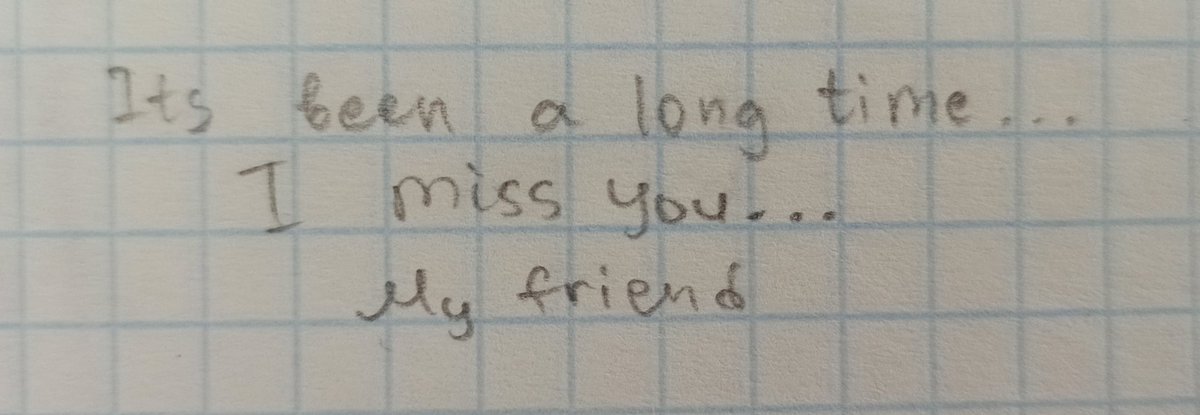 Its been a long time...
I miss you...
My friend